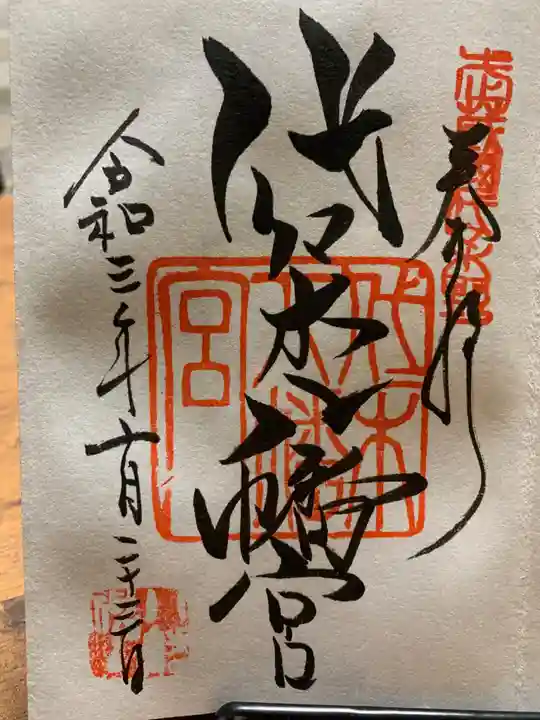 奉拝
代々木八幡宮
令和三年十月二十三日
代々木八幡宮